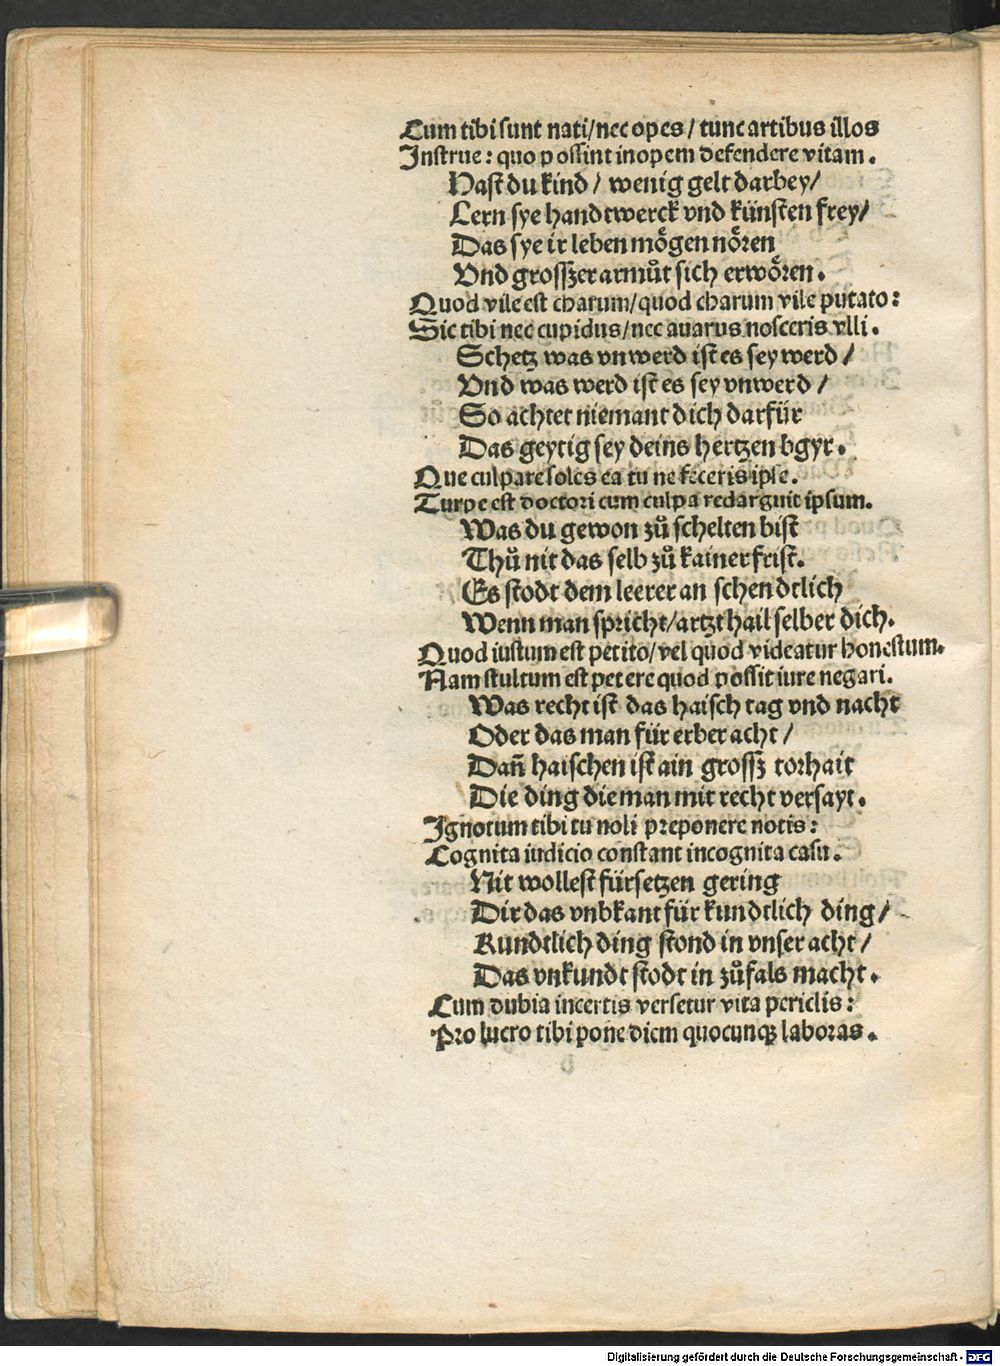 Cum tibi sunt nati/nec opes/ tunc artibus illos
Instrue: quo possint inopem defendere vitam.
Hast du kind/ wenig gelt darbey/
Lern sye handtwerck vnd künsten frey/
Das sye ir leben moͤgen noͤren
Vnd grosszer armuͦt sich erwoͤren.
Quod vile est charum/quod charum vile putato:
Sic tibi nec cupidus/nec auarus nosceris vlli.
Schetz was vnwerd ist es sey werd/
Vnd was werd ist es sey vnwerd/
So achtet niemant dich darfür
Das geytig sey deins hertzen bgyr.
Que culpare soles ea tu ne feceris ipse.
Turpe est doctori cum culpa redarguit ipsum.
Was du gewon zuͦ schelten bist
Thuͦ nit das selb zuͦ kainer frist.
Es stodt dem leerer an schendtlich
Wenn man spricht/artzt hail selber dich.
Quod iustum est petito/vel quod videatur honestum.
Nam stultum est petere quod possit iure negari.
Was recht ist das haisch tag vnd nacht
Oder das man für erber acht/
Dañ haischen ist ain grossz torhait
Die ding die man mit recht versayt.
Ignotum tibi tu noli preponere notis:
Cognita iudicio constant incognita casu.
Nit wollest fürsetzen gering
Dir das vnbkant für kundtlich ding/
Kundtlich ding stond in vnser acht/
Das vnkundt stodt in zuͦfals macht.
Cum dubia incertis versetur vita periclis:
Pro lucro tibi pone diem quocunqꝫ laboras.
Digitalisierung gefördert durch die Deutsche Forschungsgemeinschaft - DFG